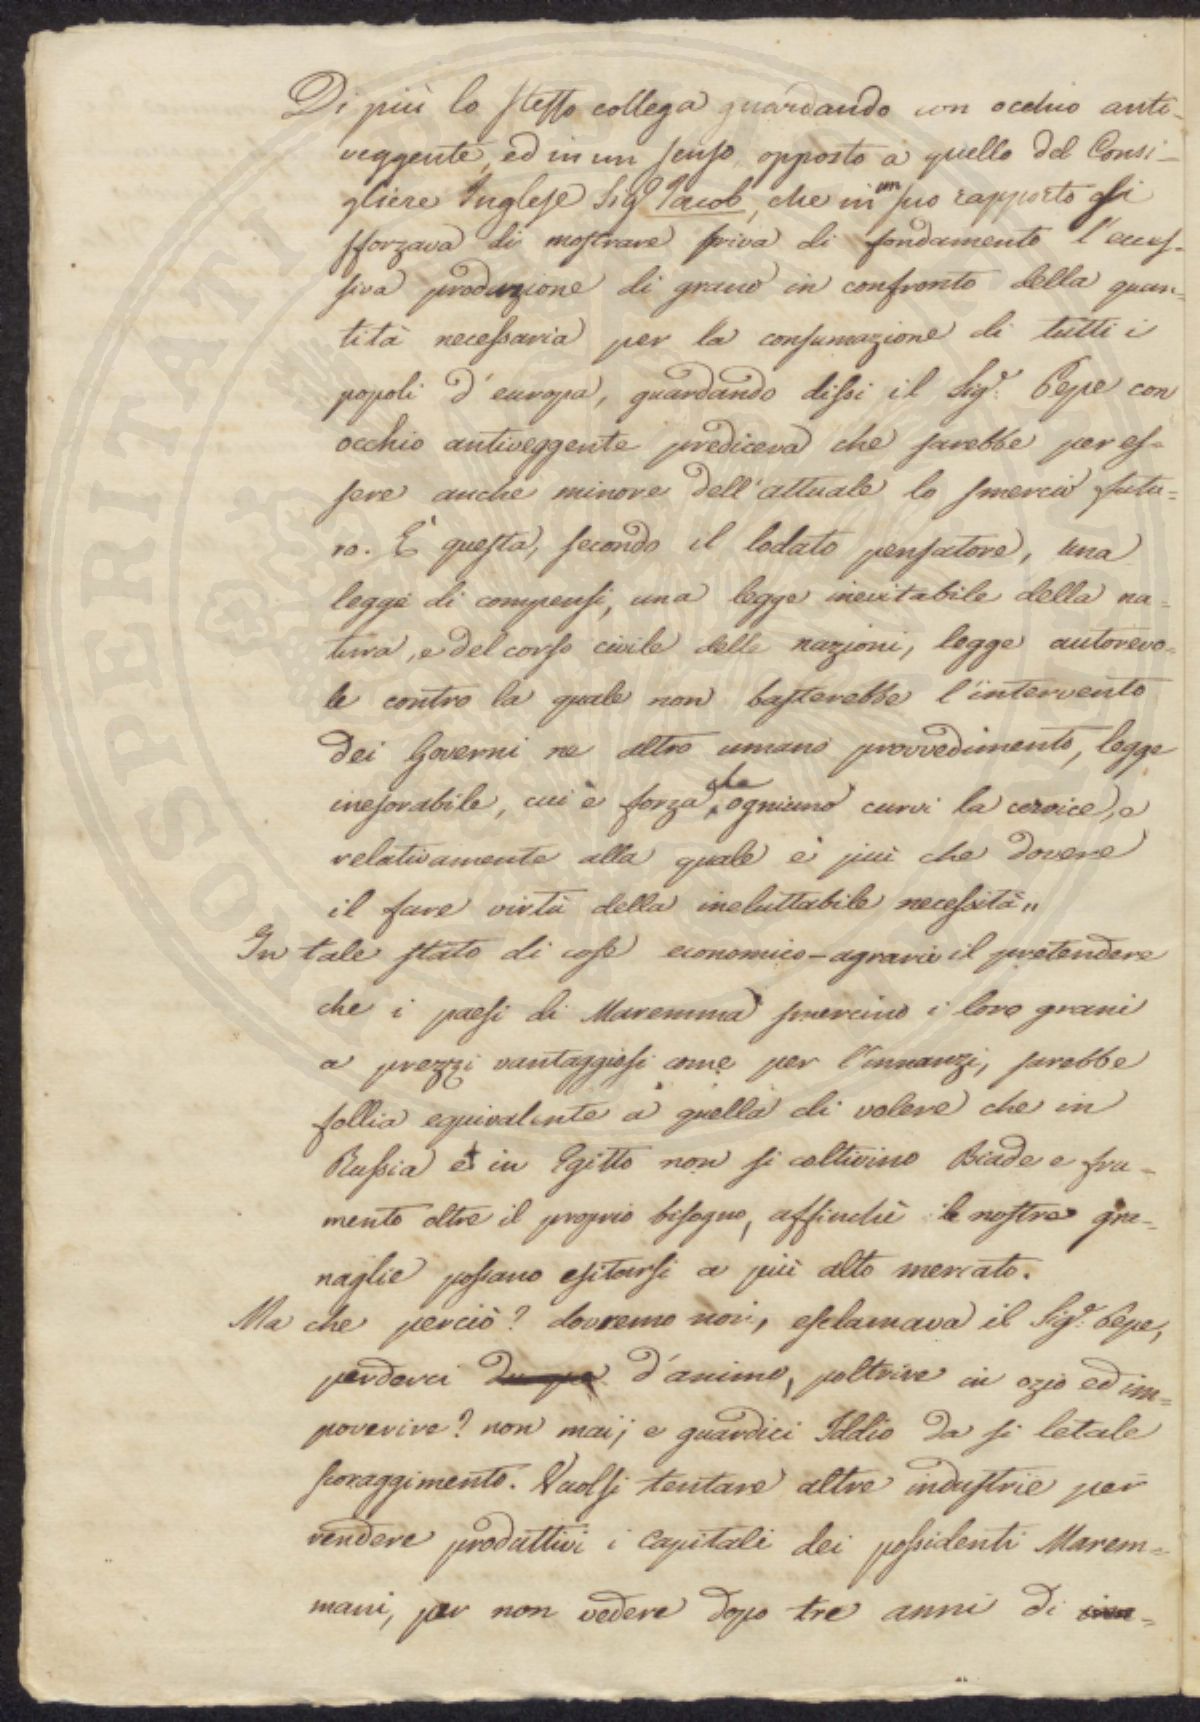 Di più lo stesso collega guardando con occhio anti-
veggente, ed in un senso opposto a quello del Consi-
gliere Inglese Sig.r Iacob, che in un suo rapporto si
sforzava di mostrare priva di fondamento l'ecces-
siva produzione di grano in confronto della quan-
tità necessaria per la consumazione di tutti i
popoli d'europa, guardando dissi il Sig.r Pepe con
occhio antiveggente prediceva che sarebbe per es-
sere anche minore dell'attuale lo smercio futu-
ro. È questa, secondo il lodato pensatore, una
legge di compensi, una legge inevitabile della na-
tura, e del corso civile delle nazioni, legge autorevo-
le contro la quale non basterebbe l'intervento
dei Governi ne altro umano provvedimento, legge
inesorabile, cui è forza che ogniuno curvi la cervice, e
relativamente alla quale è più che dovere
il fare virtù della ineluttabile necessità„
In tale stato di cose economico-agrarie il pretendere
che i paesi di Maremma smercino i loro grani
a prezzi vantaggiosi come per l'innanzi, sarebbe
follia equivalente a quella di volere che in
Russia e in Egitto non si coltivino Biade e fru-
mento oltre il proprio bisogno, affinchè le nostre gra-
naglie possano esitarsi a più alto mercato.
Ma che perciò? dovremo noi, esclamava il Sig.r Pepe,
perderci d'animo, poltrire in ozio ed im-
poverire? non mai; e guardici Iddio da sì letale
scoraggimento. Vuolsi tentare altre industrie per
rendere produttivi i Capitali dei possidenti Marem-
mani, per non vedere dopo tre anni di
HOSPERITATI PUBLICAE AUGENDAE